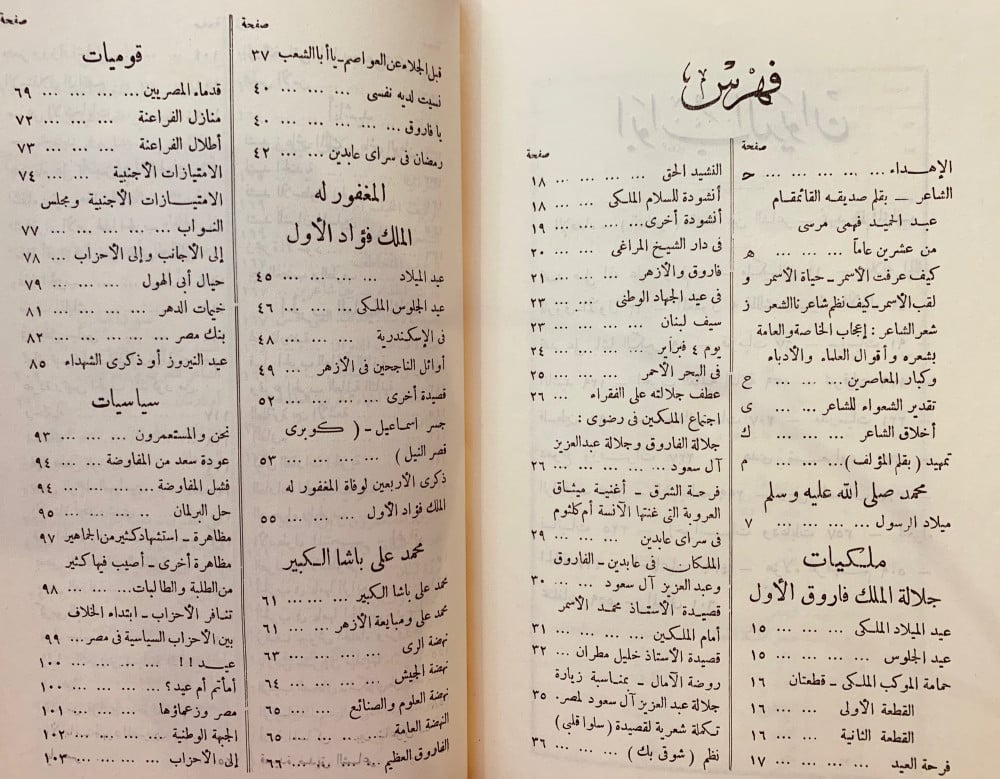 فهرس
صفحة
الإهــداء... ... ... ... ... ح
الشاعر ــ بقلم صديقه القائمقام
عبد الحميد فهمى مرسى
من عشرين عاماً ... ... ... ه
كيف عرفت الأسمر ــ حياة الأسمر و
لقب الأسمر ــ كيف نظم شاعرنا الشعر ز
شعر الشاعر : إعجاب الخاصة والعامة
بشعره وأقوال العلماء والأدباء
وكبار المعاصرين ... ... ... ح
تقدير الشعراء للشاعر ... ... ى
أخلاق الشاعر ... ... ... ك
تمهيد ( بقلم المؤلف ) ... ... م
محمد صلى الله عليه وسلم
ميلاد الرسول ... ... ... ... ٧
ملكيات
جلالة الملك فاروق الأول
عيد الميلاد الملكى ... ... ... ١٥
عيد الجلوس ... ... ... ١٥
حمامة الموكب الملكى ــ قطعتان ١٦
القطعة الأولى ... ... ١٦
القطعة الثانية ... ... ١٦
فرحة العيد ... ... ... ١٧
صفحة
النشيد الحق ... ... ... ١٨
أنشودة للسلام الملكى ... ... ١٨
أنشودة أخرى ... ... ... ١٩
فى دار الشيخ المراغى ... ... ٢٠
فاروق والأزهر ... ... ... ٢١
فى عيد الجهاد الوطنى ... ... ٢٣
سيف لبنان ... ... ... ... ٢٣
يوم ٤ فبراير ... ... ... ٢٤
فى البحر الأحمر ... ... ... ٢٥
عطف جلالته على الفقراء ... ٢٦
اجتماع الملكين فى رضوى :
جلالة الفاروق وجلالة عبدالعزيز
آل سعود ... ... ... ... ٢٦
فرحة الشرق ــ أغنية ميثاق
العروبة التى غنتها الآنسة أم كلثوم
فى سراى عابدين ... ... ... ٢٩
الملكان فى عابدين ــ الفاروق
وعبد العزيز آل سعود ... ... ٣٠
قصيدة الأستاذ محمد الأسمر
أمام الملكين ... ... ... ٣١
قصيدة الأستاذ خليل مطران ... ٣٢
روضة الآمال ــ بمناسبة زيارة
جلالة عبد العزيز آل سعود لمصر . ٣٥
تكملة شعرية لقصيدة ( سلوا قلبى )
نظم ( شوقى بك ) ... ... ... ٣٦
صفحة
قبل الجلاء عن العواصم ــ يا أبا الشعب ٣٧
نسيت لديه نفسى ... ... ... ٤٠
يا فاروق ... ... ... ... ٤٠
رمضان فى سراى عابدين ... ... ٤٢
المغفور له
الملك فؤاد الأول
عيد الميلاد ... ... ... ٤٥
عيد الجلوس الملكى ... ... ... ٤٦
فى الإسكندرية ... ... ... ٤٨
أوائل الناجحين فى الأزهر ... ٤٩
قصيدة أخرى ... ... ... ... ٥٢
جسر اسماعيل ــ ( كوبرى
قصر النيل ) ... ... ... ٥٣
ذكرى الأربعين لوفاة المغفور له
الملك فؤاد الأول ... ... ... ٥٥
محمد على باشا الكبير
محمد على باشا الكبير ... ... ... ٦١
محمد على ومبايعة الأزهر ... ... ٦١
نهضة الرى ... ... ... ... ٦٣
نهضة الجيش ... ... ... ... ٦٤
نهضة العلوم والصنائع ... ... ٦٥
النهضة العامة ... ... ... ٦٥
الفاروق العظيم ... ... ... ٦٦
صفحة
قوميات
قدماء المصريين ... ... ... ... ٦٩
منازل الفراعنة ... ... ... ٧٢
أطلال الفراعنة ... ... ... ٧٣
الامتيازات الأجنبية ... ... ٧٤
الامتيازات الأجنبية ومجلس
النواب ... ... ... ... ٧٧
إلى الأجانب وإلى الأحزاب ... ٧٨
حيال أبى الهول ... ... ... ٧٩
خيمات الدهر ... ... ... ٨١
بنك مصر ... ... ... ... ٨٢
عيد النيروز أو ذكرى الشهداء ٨٥
سياسيات
نحن والمستعمرون ... ... ... ٩٣
عودة سعد من المفاوضة ... ... ٩٤
فشل المفاوضة ... ... ... ٩٤
حل البرلمان ... ... ... ٩٥
مظاهرة ــ استشهاد كثير من الجماهير ٩٧
مظاهرة أخرى ــ أصيب فيها كثير
من الطلبة والطالبات ... ... ... ٩٨
تنافر الأحزاب ــ ابتداء الخلاف
بين الأحزاب السياسية فى مصر ... ٩٩
عيــد !! ... ... ... ... ١٠٠
أمأتم أم عيد ؟ ... ... ... ... ١٠٠
مصر وزعماؤها ... ... ... ١٠١
الجبهة الوطنية ... ... ... ١٠٢
إلى الأحزاب ... ... ... ١٠٣